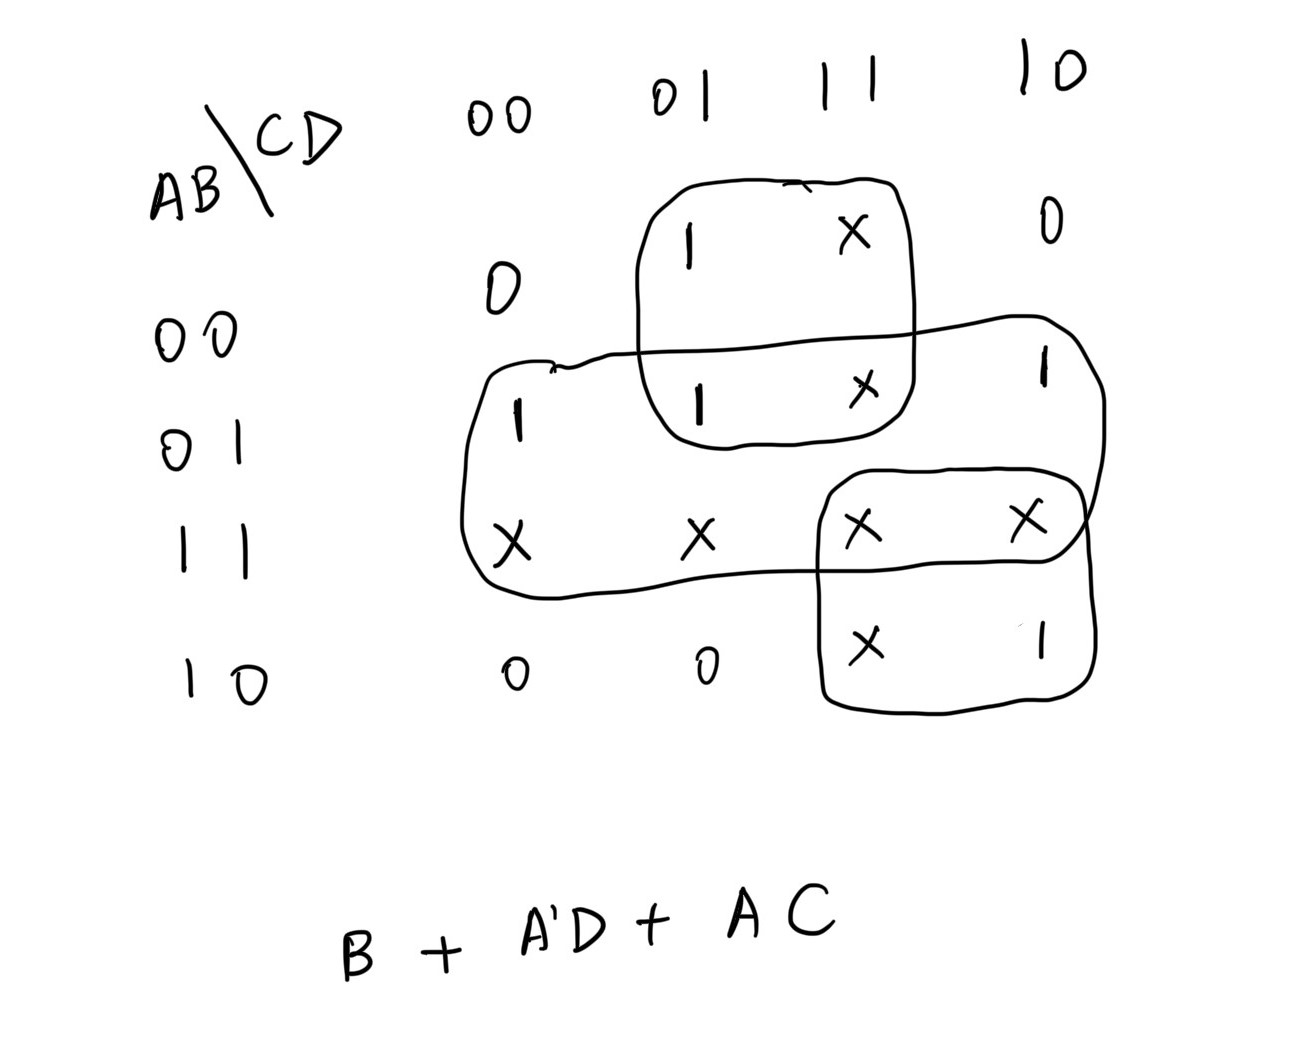 AB\CD 00 01 11 10
00 0 1 X 0
01 1 1 X 1
11 X X X X
10 0 0 X 1
B + A'D + AC